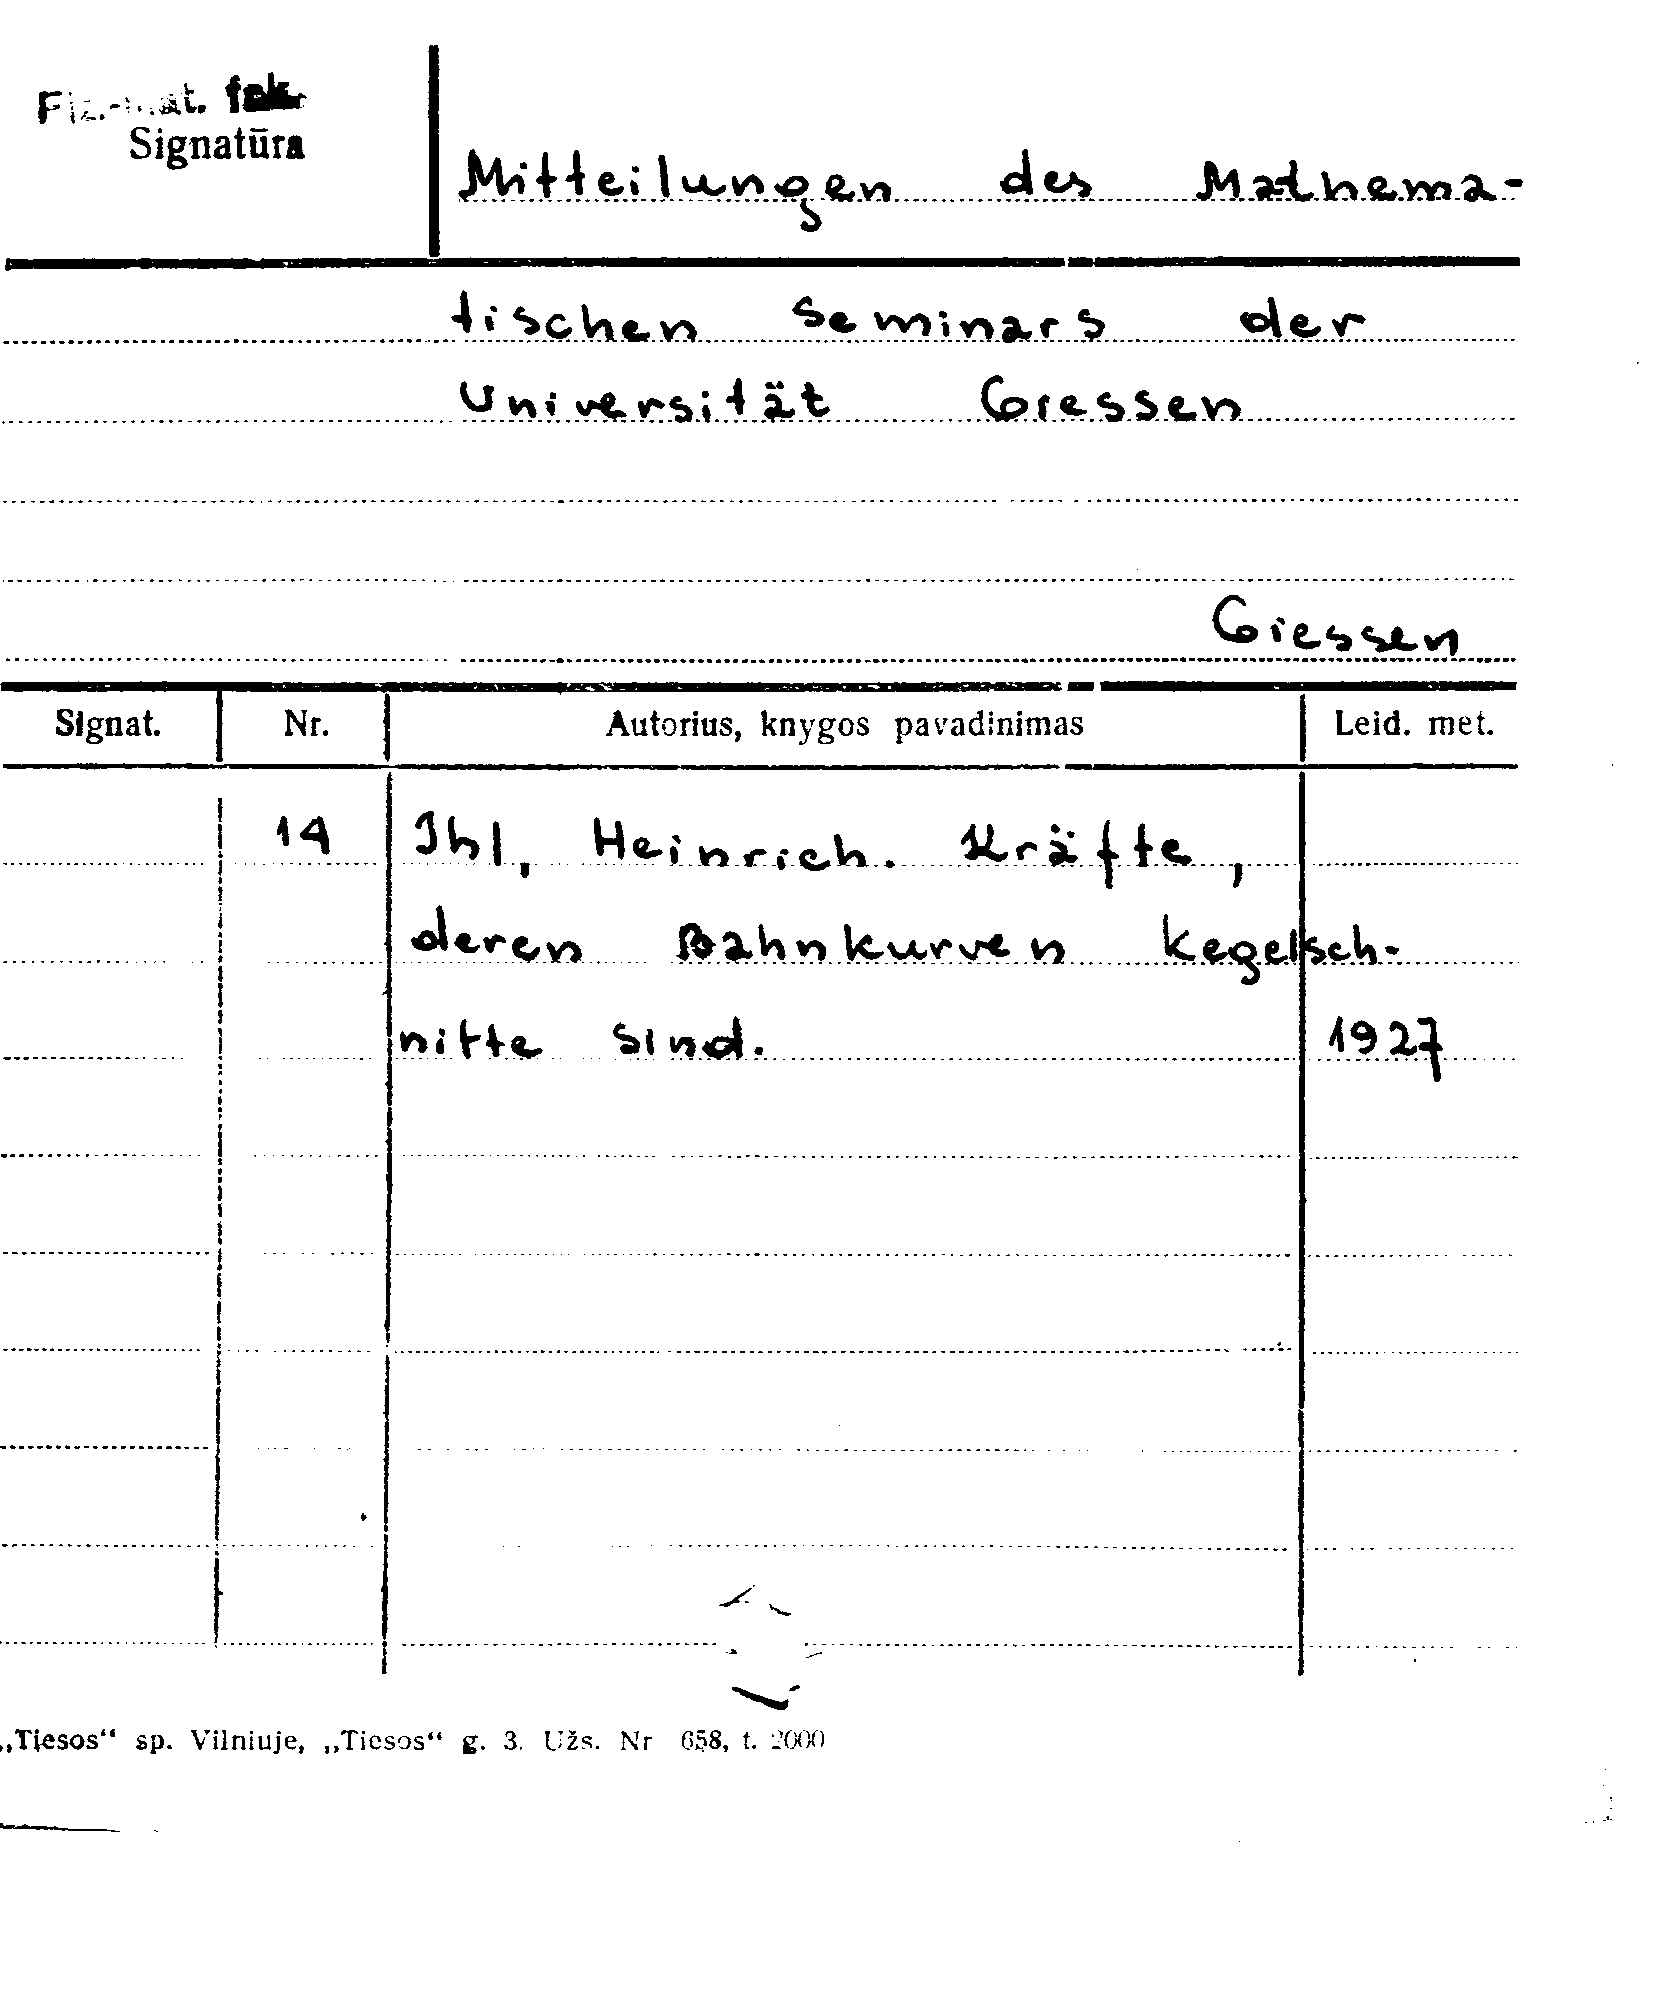 Fiz.-mat. fak.
Signatūra
Mitteilungen des Mathema-
tischen Seminars der
Universität Giessen
Giessen
Signat. Nr. Autorius, knygos pavadinimas Leid. met.
14 Ihl, Heinrich. Kräfte,
deren Bahnkurven Kegelsch-
nitte sind. 1927
„Tiesos“ sp. Vilniuje, „Tiesos“ g. 3. Užs. Nr 658, t. 2000